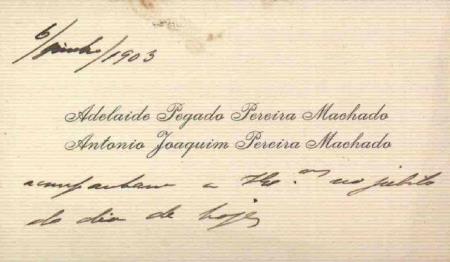 6/junho/1903
Adelaide Pegado Pereira Machado
Antonio Joaquim Pereira Machado
acompanham a no jubilo
do dia de hoje